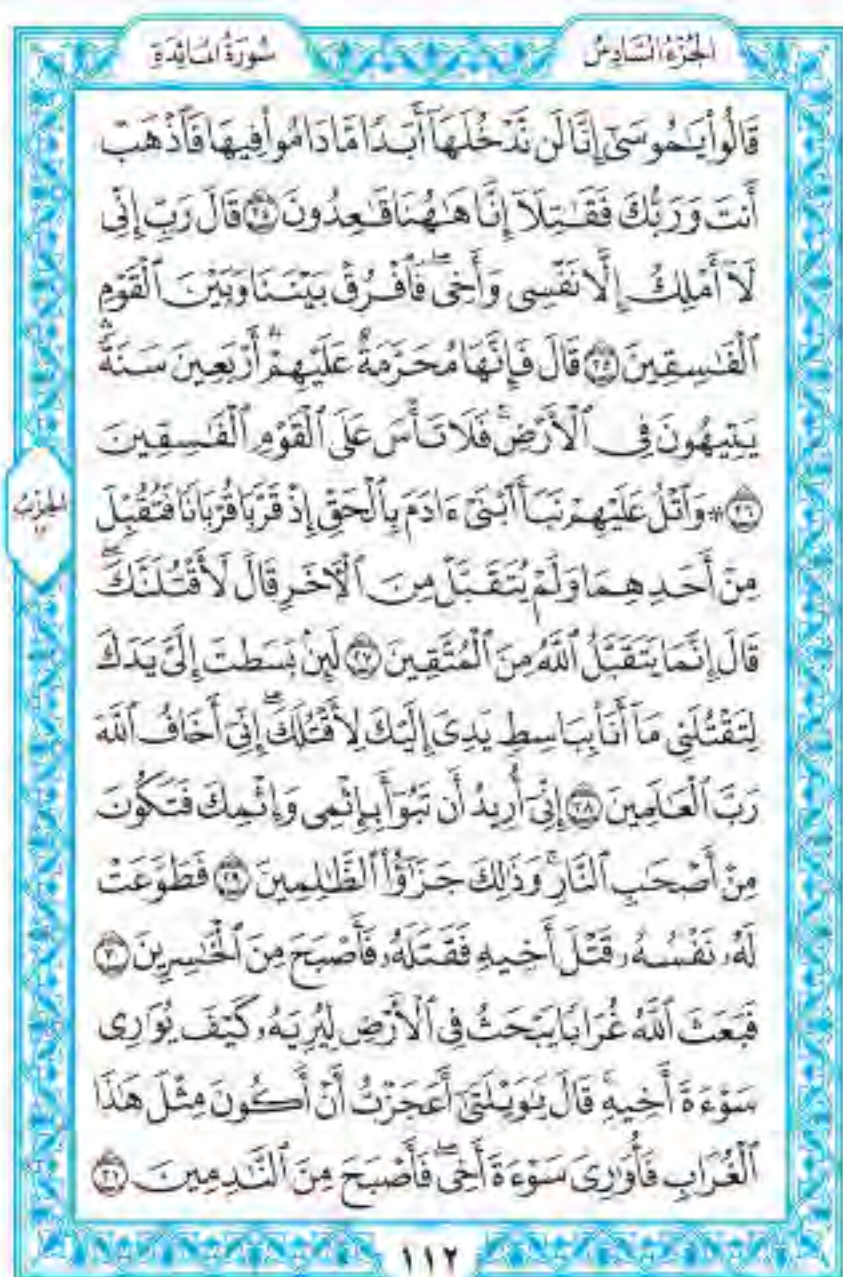 الجُزْءُ السَّادِسُ
سُورَةُ المَائِدَةِ
قَالُوا۟ يَـٰمُوسَىٰٓ إِنَّا لَن نَّدْخُلَهَآ أَبَدًا مَّا دَامُوا۟ فِيهَا فَٱذْهَبْ
أَنتَ وَرَبُّكَ فَقَـٰتِلَآ إِنَّا هَـٰهُنَا قَـٰعِدُونَ ٢٤ قَالَ رَبِّ إِنِّى
لَآ أَمْلِكُ إِلَّا نَفْسِى وَأَخِى ۖ فَٱفْرُقْ بَيْنَنَا وَبَيْنَ ٱلْقَوْمِ
ٱلْفَـٰسِقِينَ ٢٥ قَالَ فَإِنَّهَا مُحَرَّمَةٌ عَلَيْهِمْ ۛ أَرْبَعِينَ سَنَةً ۛ
يَتِيهُونَ فِى ٱلْأَرْضِ ۚ فَلَا تَأْسَ عَلَى ٱلْقَوْمِ ٱلْفَـٰسِقِينَ
٢٦ ۞ وَٱتْلُ عَلَيْهِمْ نَبَأَ ٱبْنَىْ ءَادَمَ بِٱلْحَقِّ إِذْ قَرَّبَا قُرْبَانًا فَتُقُبِّلَ
مِنْ أَحَدِهِمَا وَلَمْ يُتَقَبَّلْ مِنَ ٱلْـَٔاخَرِ قَالَ لَأَقْتُلَنَّكَ ۖ
قَالَ إِنَّمَا يَتَقَبَّلُ ٱللَّهُ مِنَ ٱلْمُتَّقِينَ ٢٧ لَئِنۢ بَسَطتَ إِلَىَّ يَدَكَ
لِتَقْتُلَنِى مَآ أَنَا۠ بِبَاسِطٍ يَدِىَ إِلَيْكَ لِأَقْتُلَكَ ۖ إِنِّىٓ أَخَافُ ٱللَّهَ
رَبَّ ٱلْعَـٰلَمِينَ ٢٨ إِنِّىٓ أُرِيدُ أَن تَبُوٓأَ بِإِثْمِى وَإِثْمِكَ فَتَكُونَ
مِنْ أَصْحَـٰبِ ٱلنَّارِ ۚ وَذَٰلِكَ جَزَٰٓؤُا۟ ٱلظَّـٰلِمِينَ ٢٩ فَطَوَّعَتْ
لَهُۥ نَفْسُهُۥ قَتْلَ أَخِيهِ فَقَتَلَهُۥ فَأَصْبَحَ مِنَ ٱلْخَـٰسِرِينَ ٣٠
فَبَعَثَ ٱللَّهُ غُرَابًا يَبْحَثُ فِى ٱلْأَرْضِ لِيُرِيَهُۥ كَيْفَ يُوَٰرِى
سَوْءَةَ أَخِيهِ ۚ قَالَ يَـٰوَيْلَتَىٰٓ أَعَجَزْتُ أَنْ أَكُونَ مِثْلَ هَـٰذَا
ٱلْغُرَابِ فَأُوَٰرِىَ سَوْءَةَ أَخِى ۖ فَأَصْبَحَ مِنَ ٱلنَّـٰدِمِينَ ٣١
الحِزْبُ
١١٢